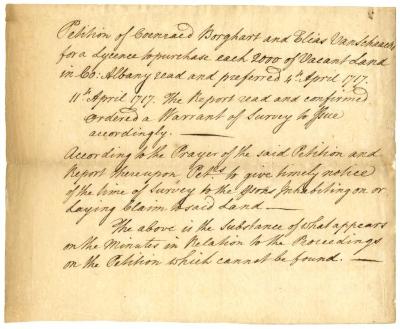 Petition of Coenraed Borghart and Elias Van Schaack
for a Lycence to purchase each 2000 of Vacant Land
in Co: Albany read and preferred 4th April 1717.
11th April 1717. The Report read and confirmed
ordered a Warrant of Survey to Issue
accordingly. —
According to the Prayer of the said Petition and
Report thereupon, Petrs to give timely notice
of the time of Survey to the psons Inhabiting on or
Laying Claim to said Land —
The above is the Substance of what appears
on the Minutes in Relation to the Proceedings
on the Petition which cannot be found. —